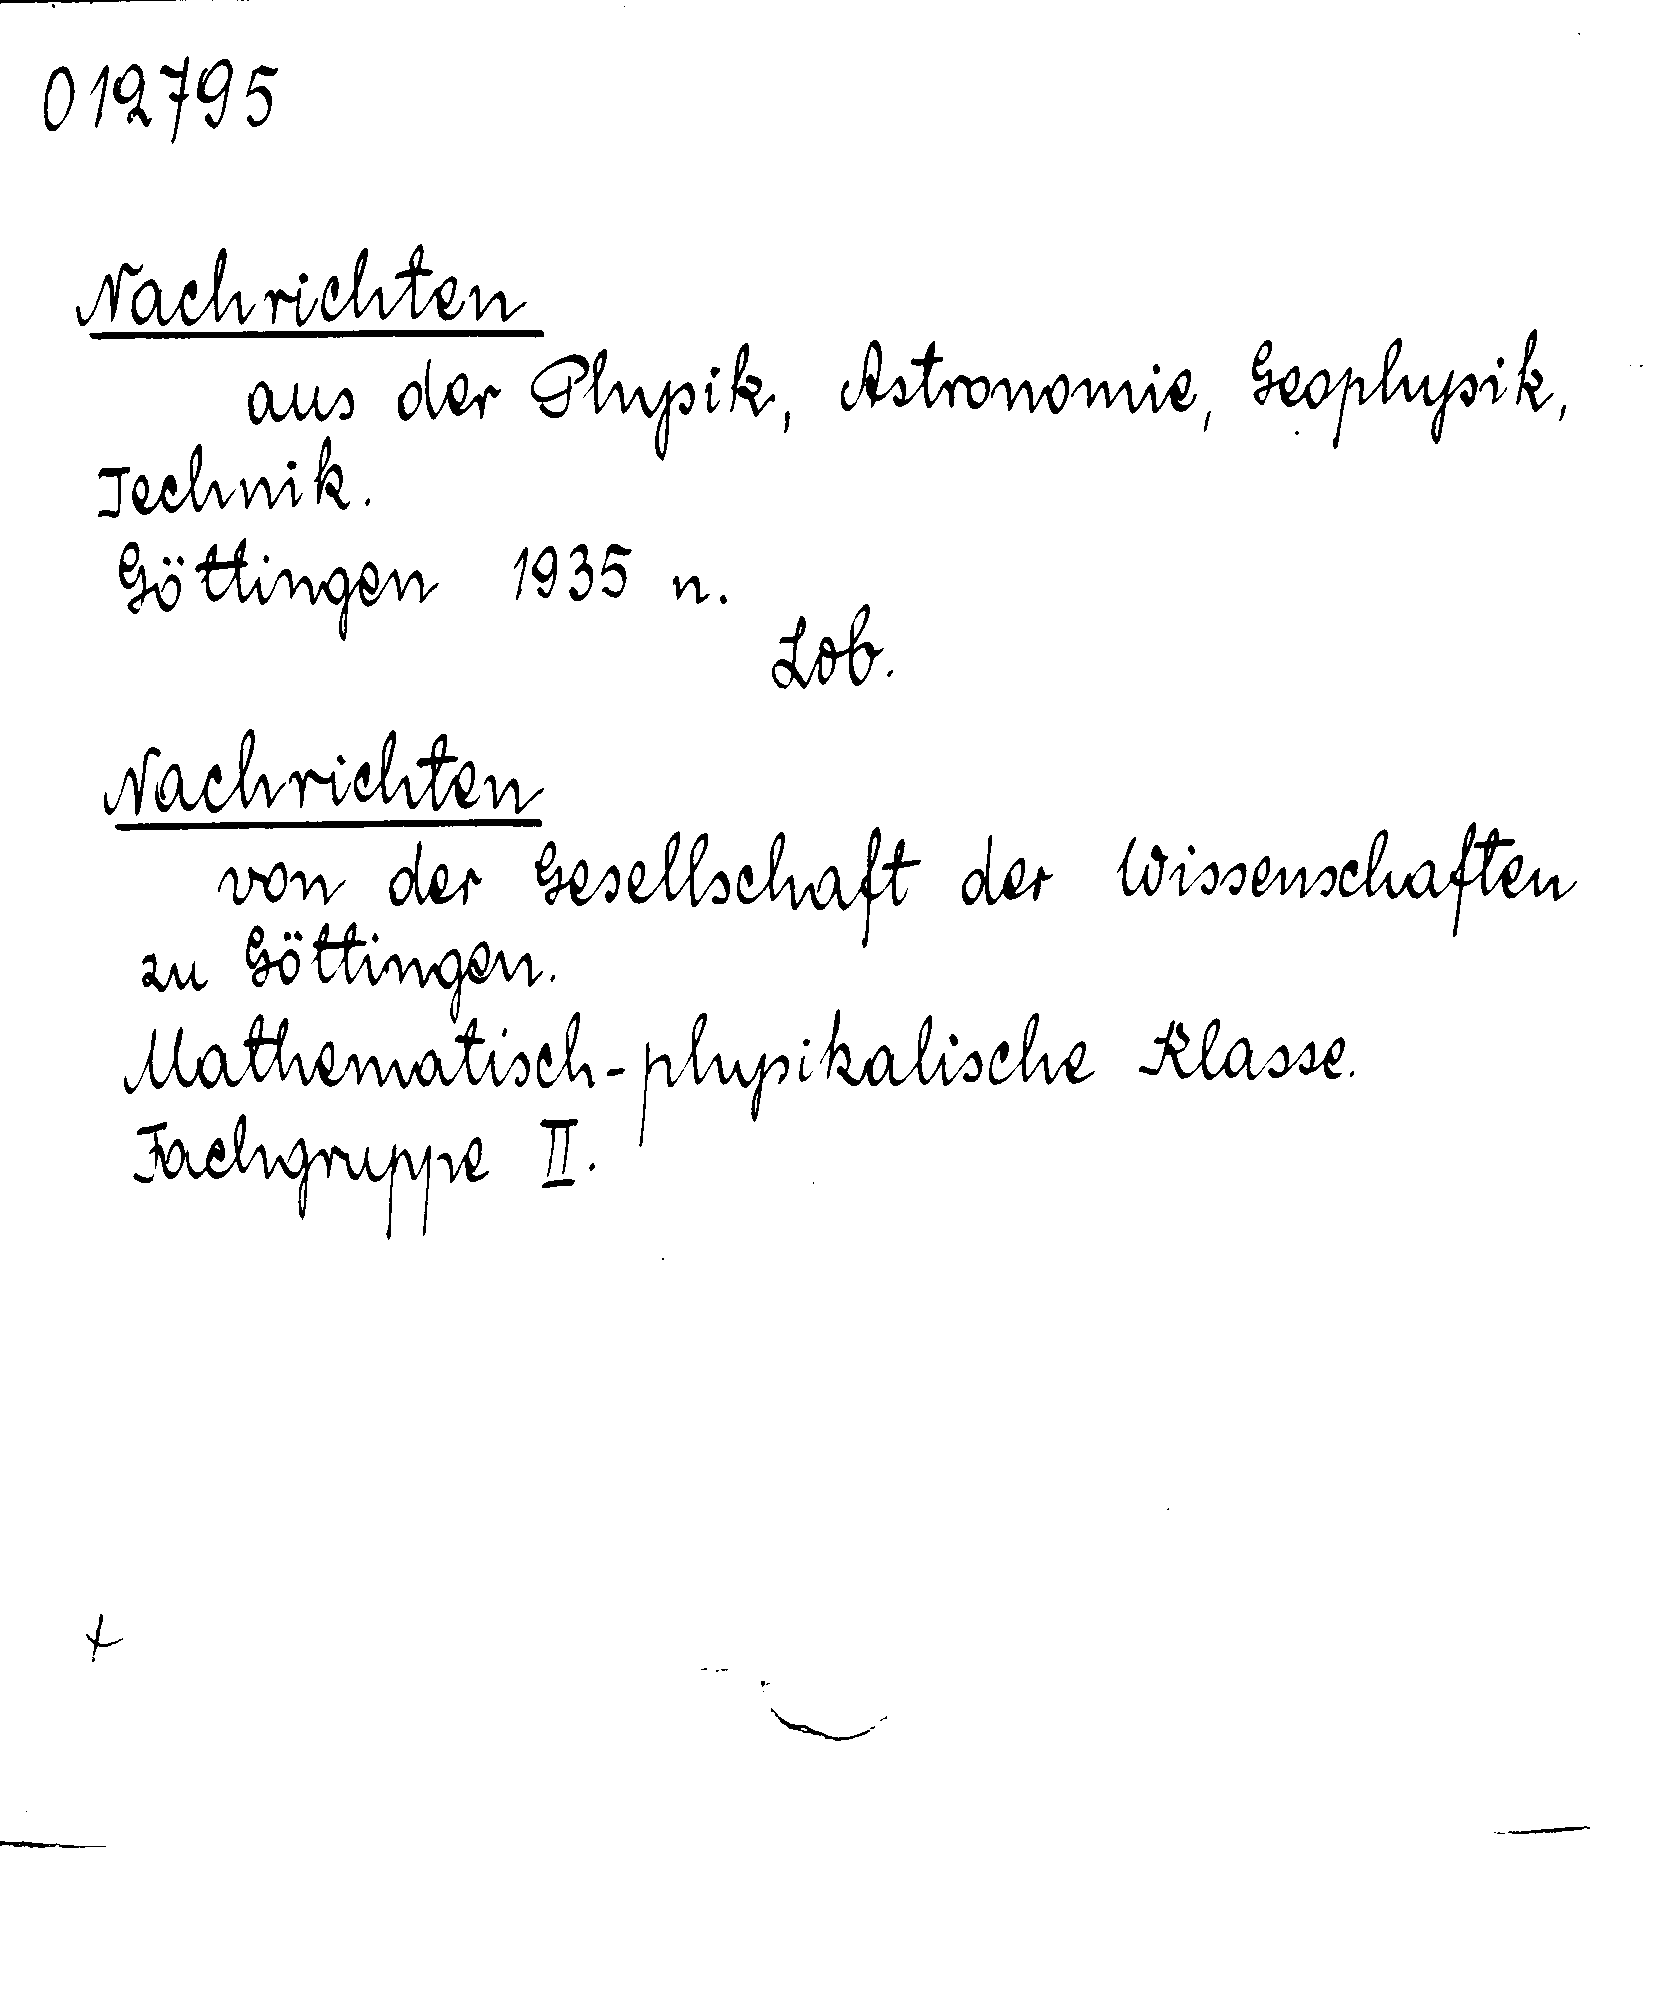 012795
Nachrichten
aus der Physik, Astronomie, Geophysik,
Technik.
Göttingen 1935 n.
Zob.
Nachrichten
von der Gesellschaft der Wissenschaften
zu Göttingen.
Mathematisch-physikalische Klasse.
Fachgruppe II.